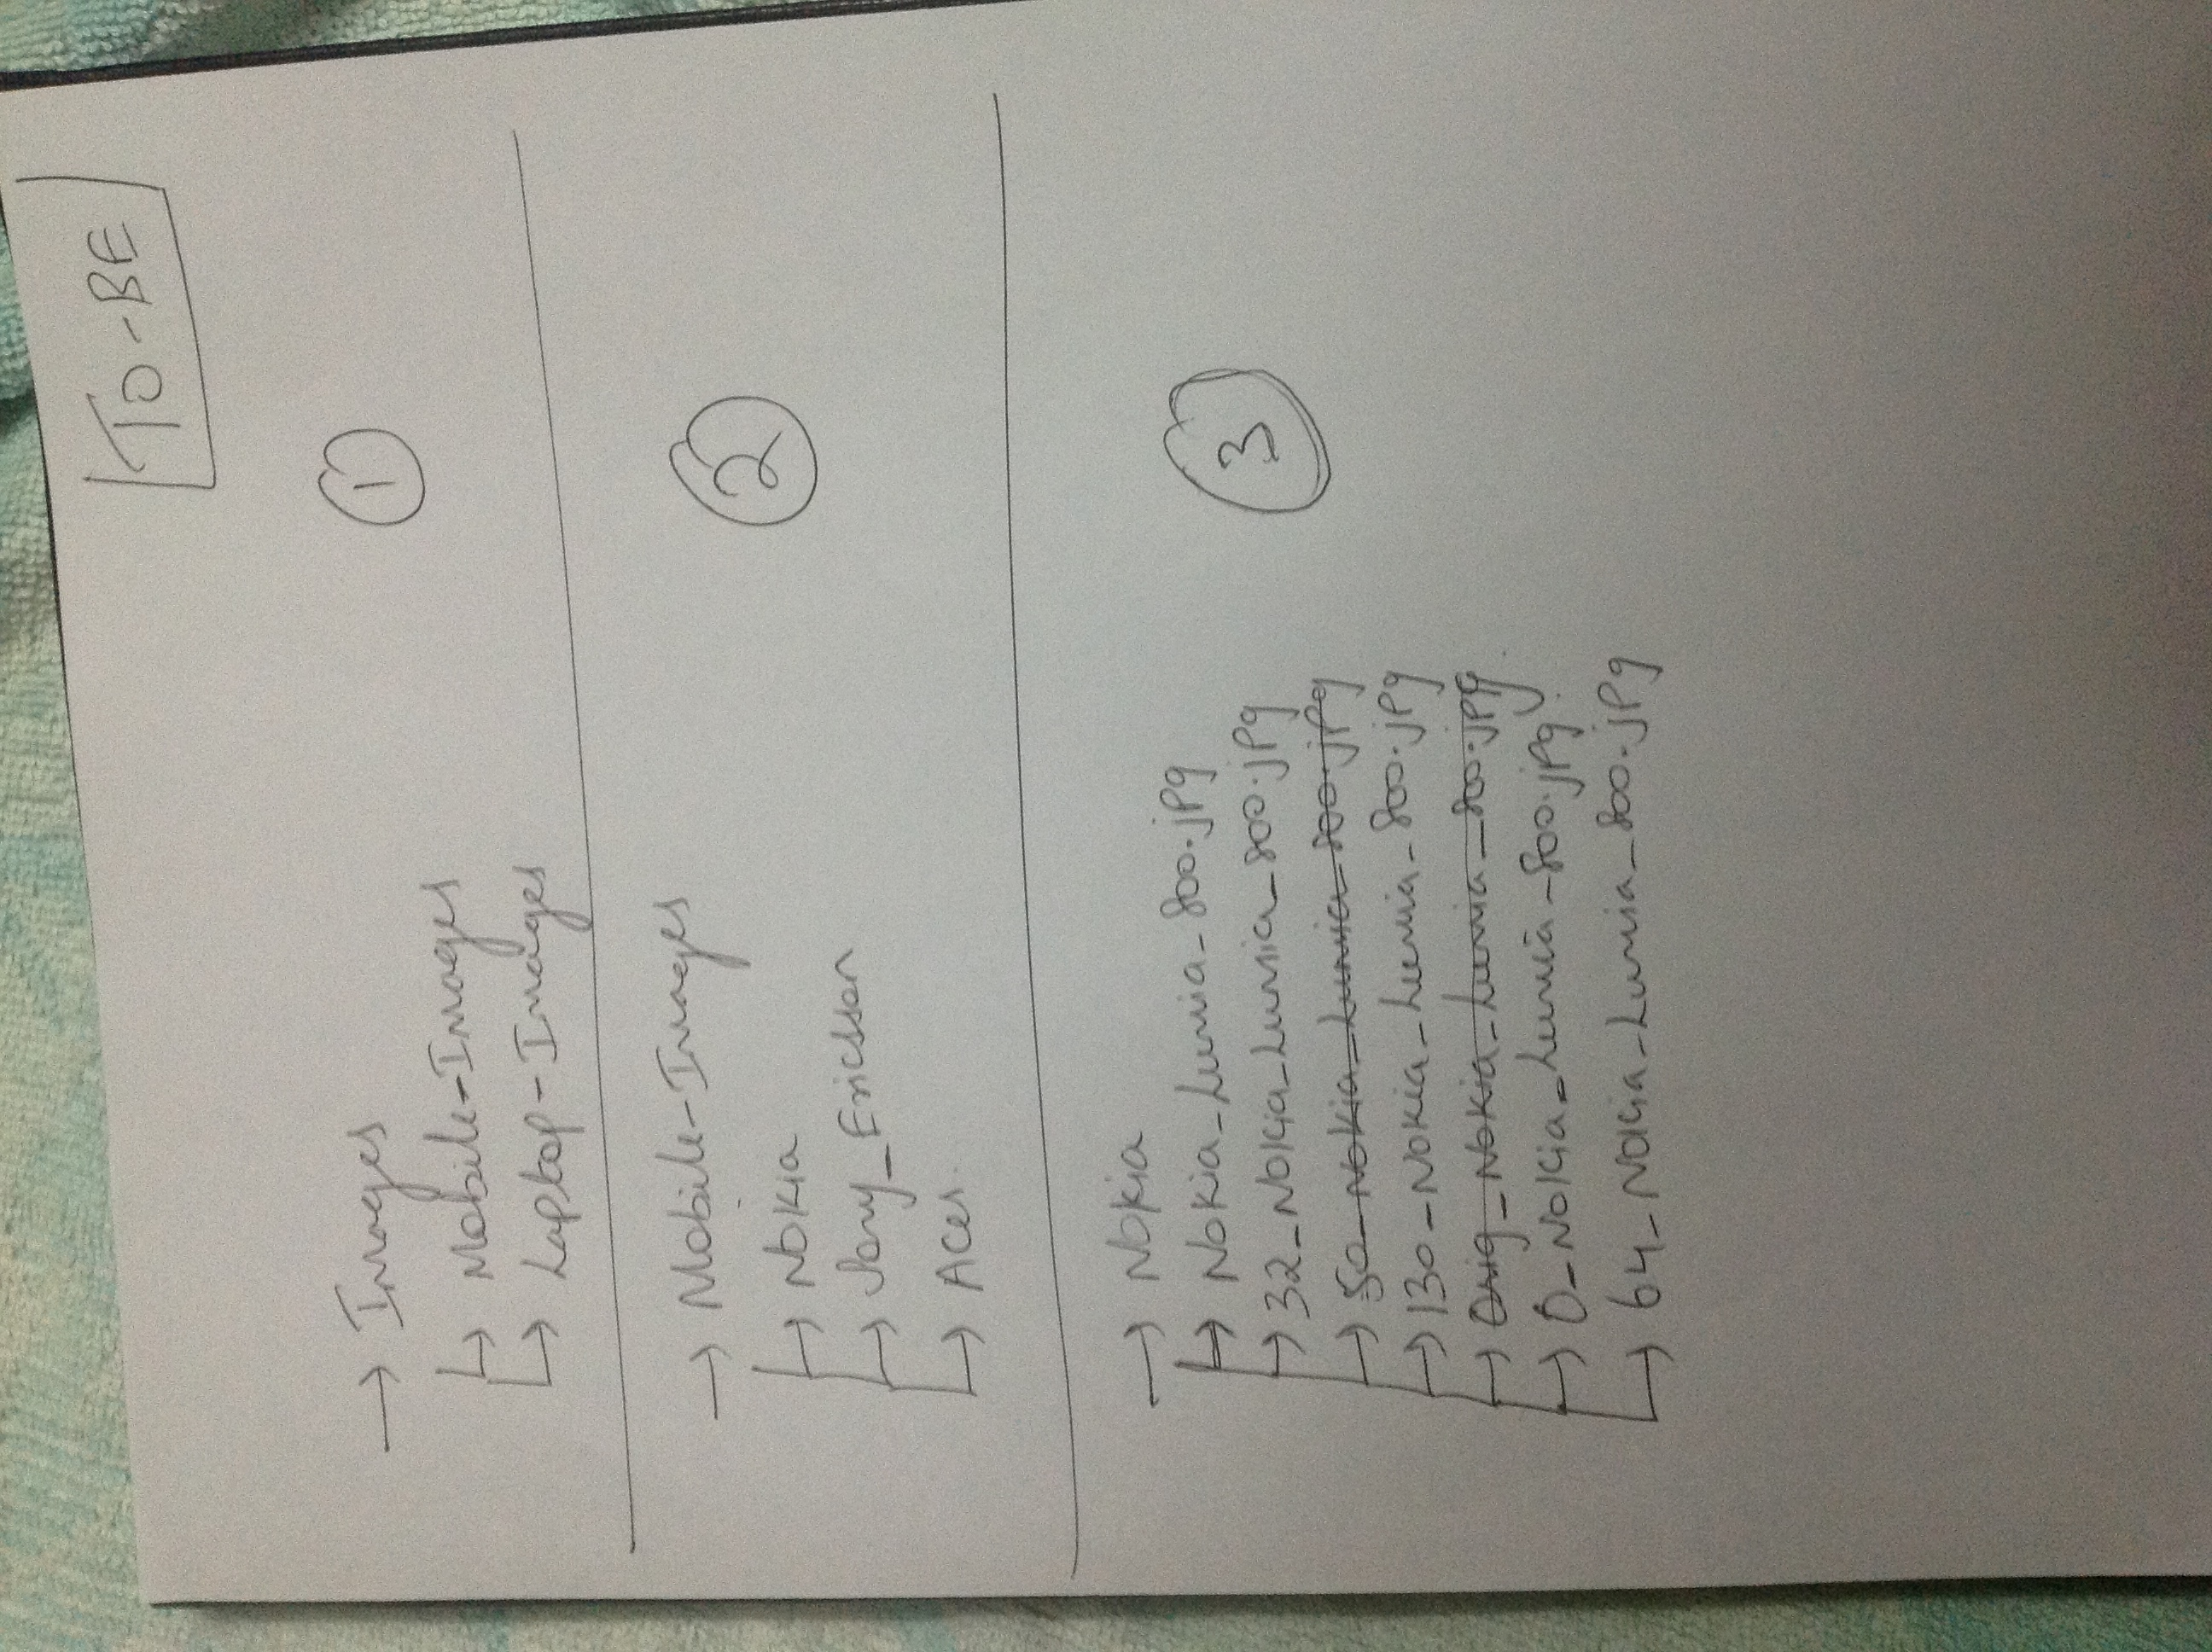 TO-BE
→ Images ①
→ Mobile-Images
→ Laptop-Images
→ Mobile-Images ②
→ Nokia
→ Sony_Ericsson
→ Acer
→ Nokia ③
→ Nokia_Lumia_800.jpg
→ 32_Nokia_Lumia_800.jpg
→ 50_Nokia_Lumia_800.jpg
→ 130_Nokia_Lumia_800.jpg
→ Orig_Nokia_Lumia_800.jpg
→ 0_Nokia_Lumia_800.jpg
→ 64_Nokia_Lumia_800.jpg